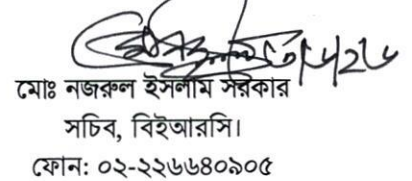 মোঃ নজরুল ইসলাম সরকার
সচিব, বিইআরসি।
ফোন: ০২-২২৬৬৪০৯০৫